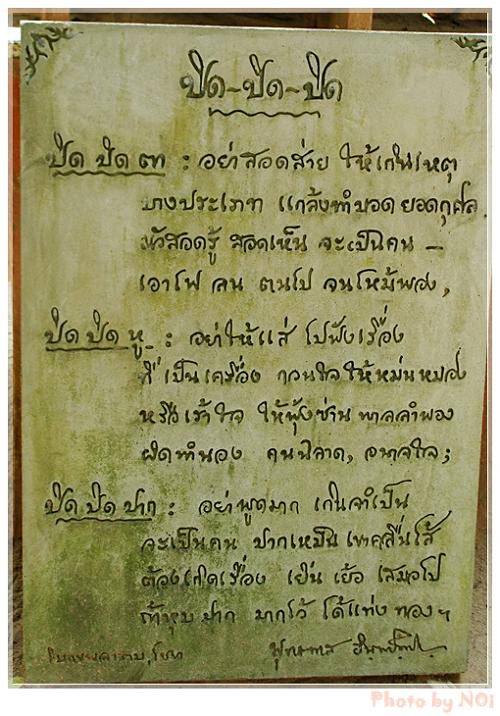 ปิด-ปิด-ปิด
ปิด ปิด ตา : อย่าสอดส่าย ให้เกินเหตุ
บางประเภท แกล้งทำบอด ยอดกุศล
มัวสอดรู้ สอดเห็น จะเป็นคน -
เอาไฟ ลน ตนไป จนไหม้พอง,
ปิด ปิด หู : อย่าให้แส่ ไปฟังเรื่อง
ที่เป็นเครื่อง กวนใจ ให้หม่นหมอง
หรือเร้าใจ ให้ฟุ้งซ่าน พาลลำพอง
ผิดทำนอง คนฉลาด, อนาถใจ;
ปิด ปิด ปาก : อย่าพูดมาก เกินจำเป็น
จะเป็นคน ปากเหม็น เขาคลื่นไส้
ต้องเกิดเรื่อง เยิ่น เย้อ เสมอไป
ถ้าหุบ ปาก มากไว้ ได้แท่ง ทอง ฯ
พุทธทาส อินทปัญโญ
Photo by NOi